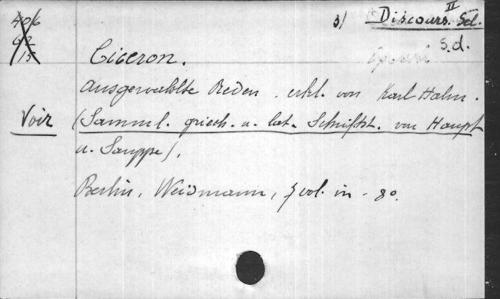 406
3) Discours. Sel.
II
s.d.
Ciceron.
Ausgewählte Reden. erkl. von Karl Halm.
Voir
(Samml. griech. u. lat. Schriftst. von Haupt
u. Sauppe).
Berlin, Weidmann, 7 vol. in-8o.